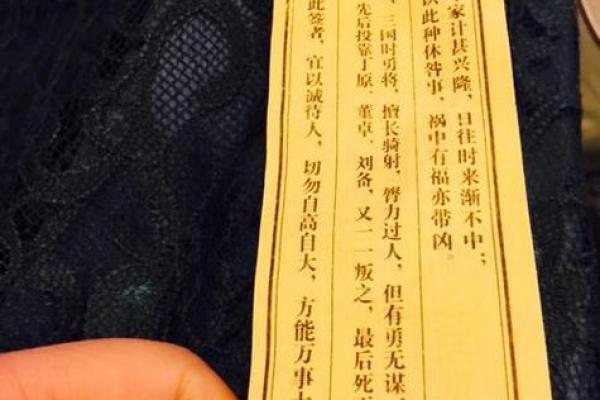 家计甚兴隆，日往时来渐不中；
此种休咎事，祸中有福亦带凶。
三国时勇将，擅长骑射，臂力过人，但有勇无谋
先后投靠丁原、董卓、刘备，又一一叛之，最后死
此签者，宜以诚待人，切勿自高自大，方能万事